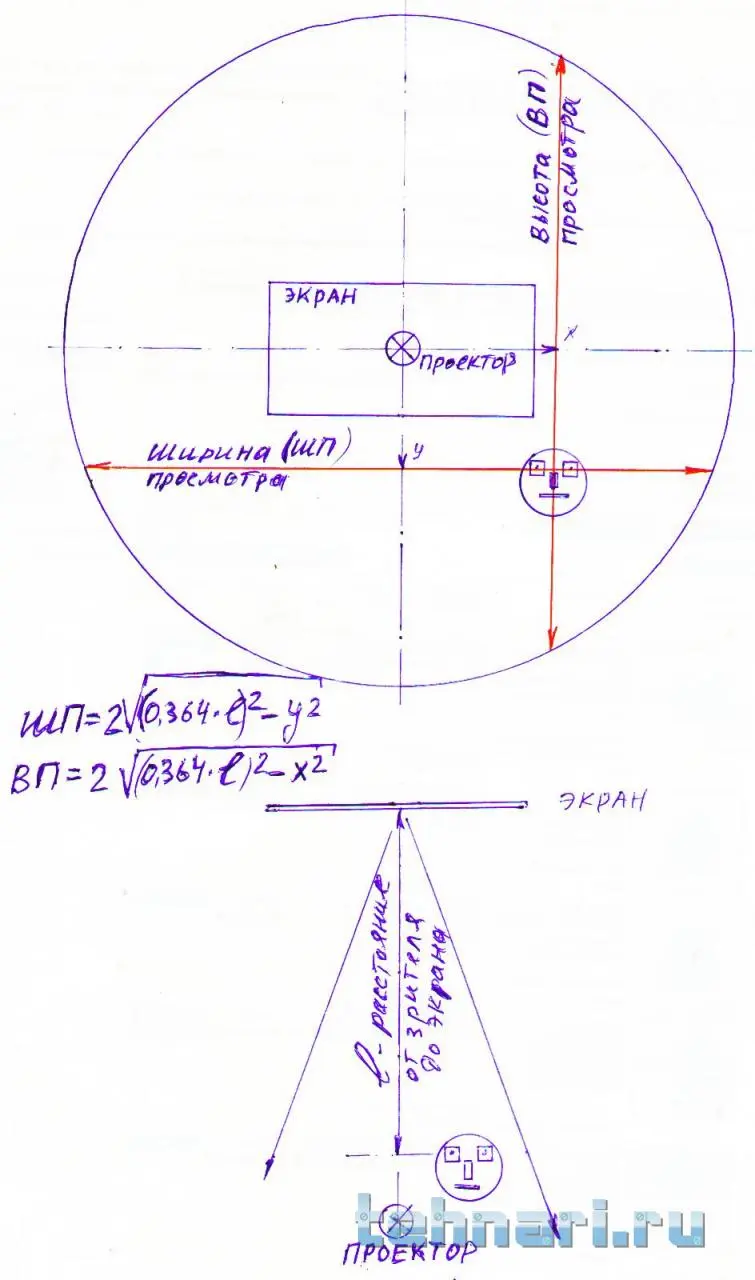 Высота (ВП)
просмотра
ЭКРАН
x
проектор
Ширина (ШП)
просмотра
y
ШП=2√(0,364·ℓ)²-y²
ВП=2√(0,364·ℓ)²-x²
ЭКРАН
ℓ-расстояние
от зрителя
до экрана
tehnari.ru
ПРОЕКТОР